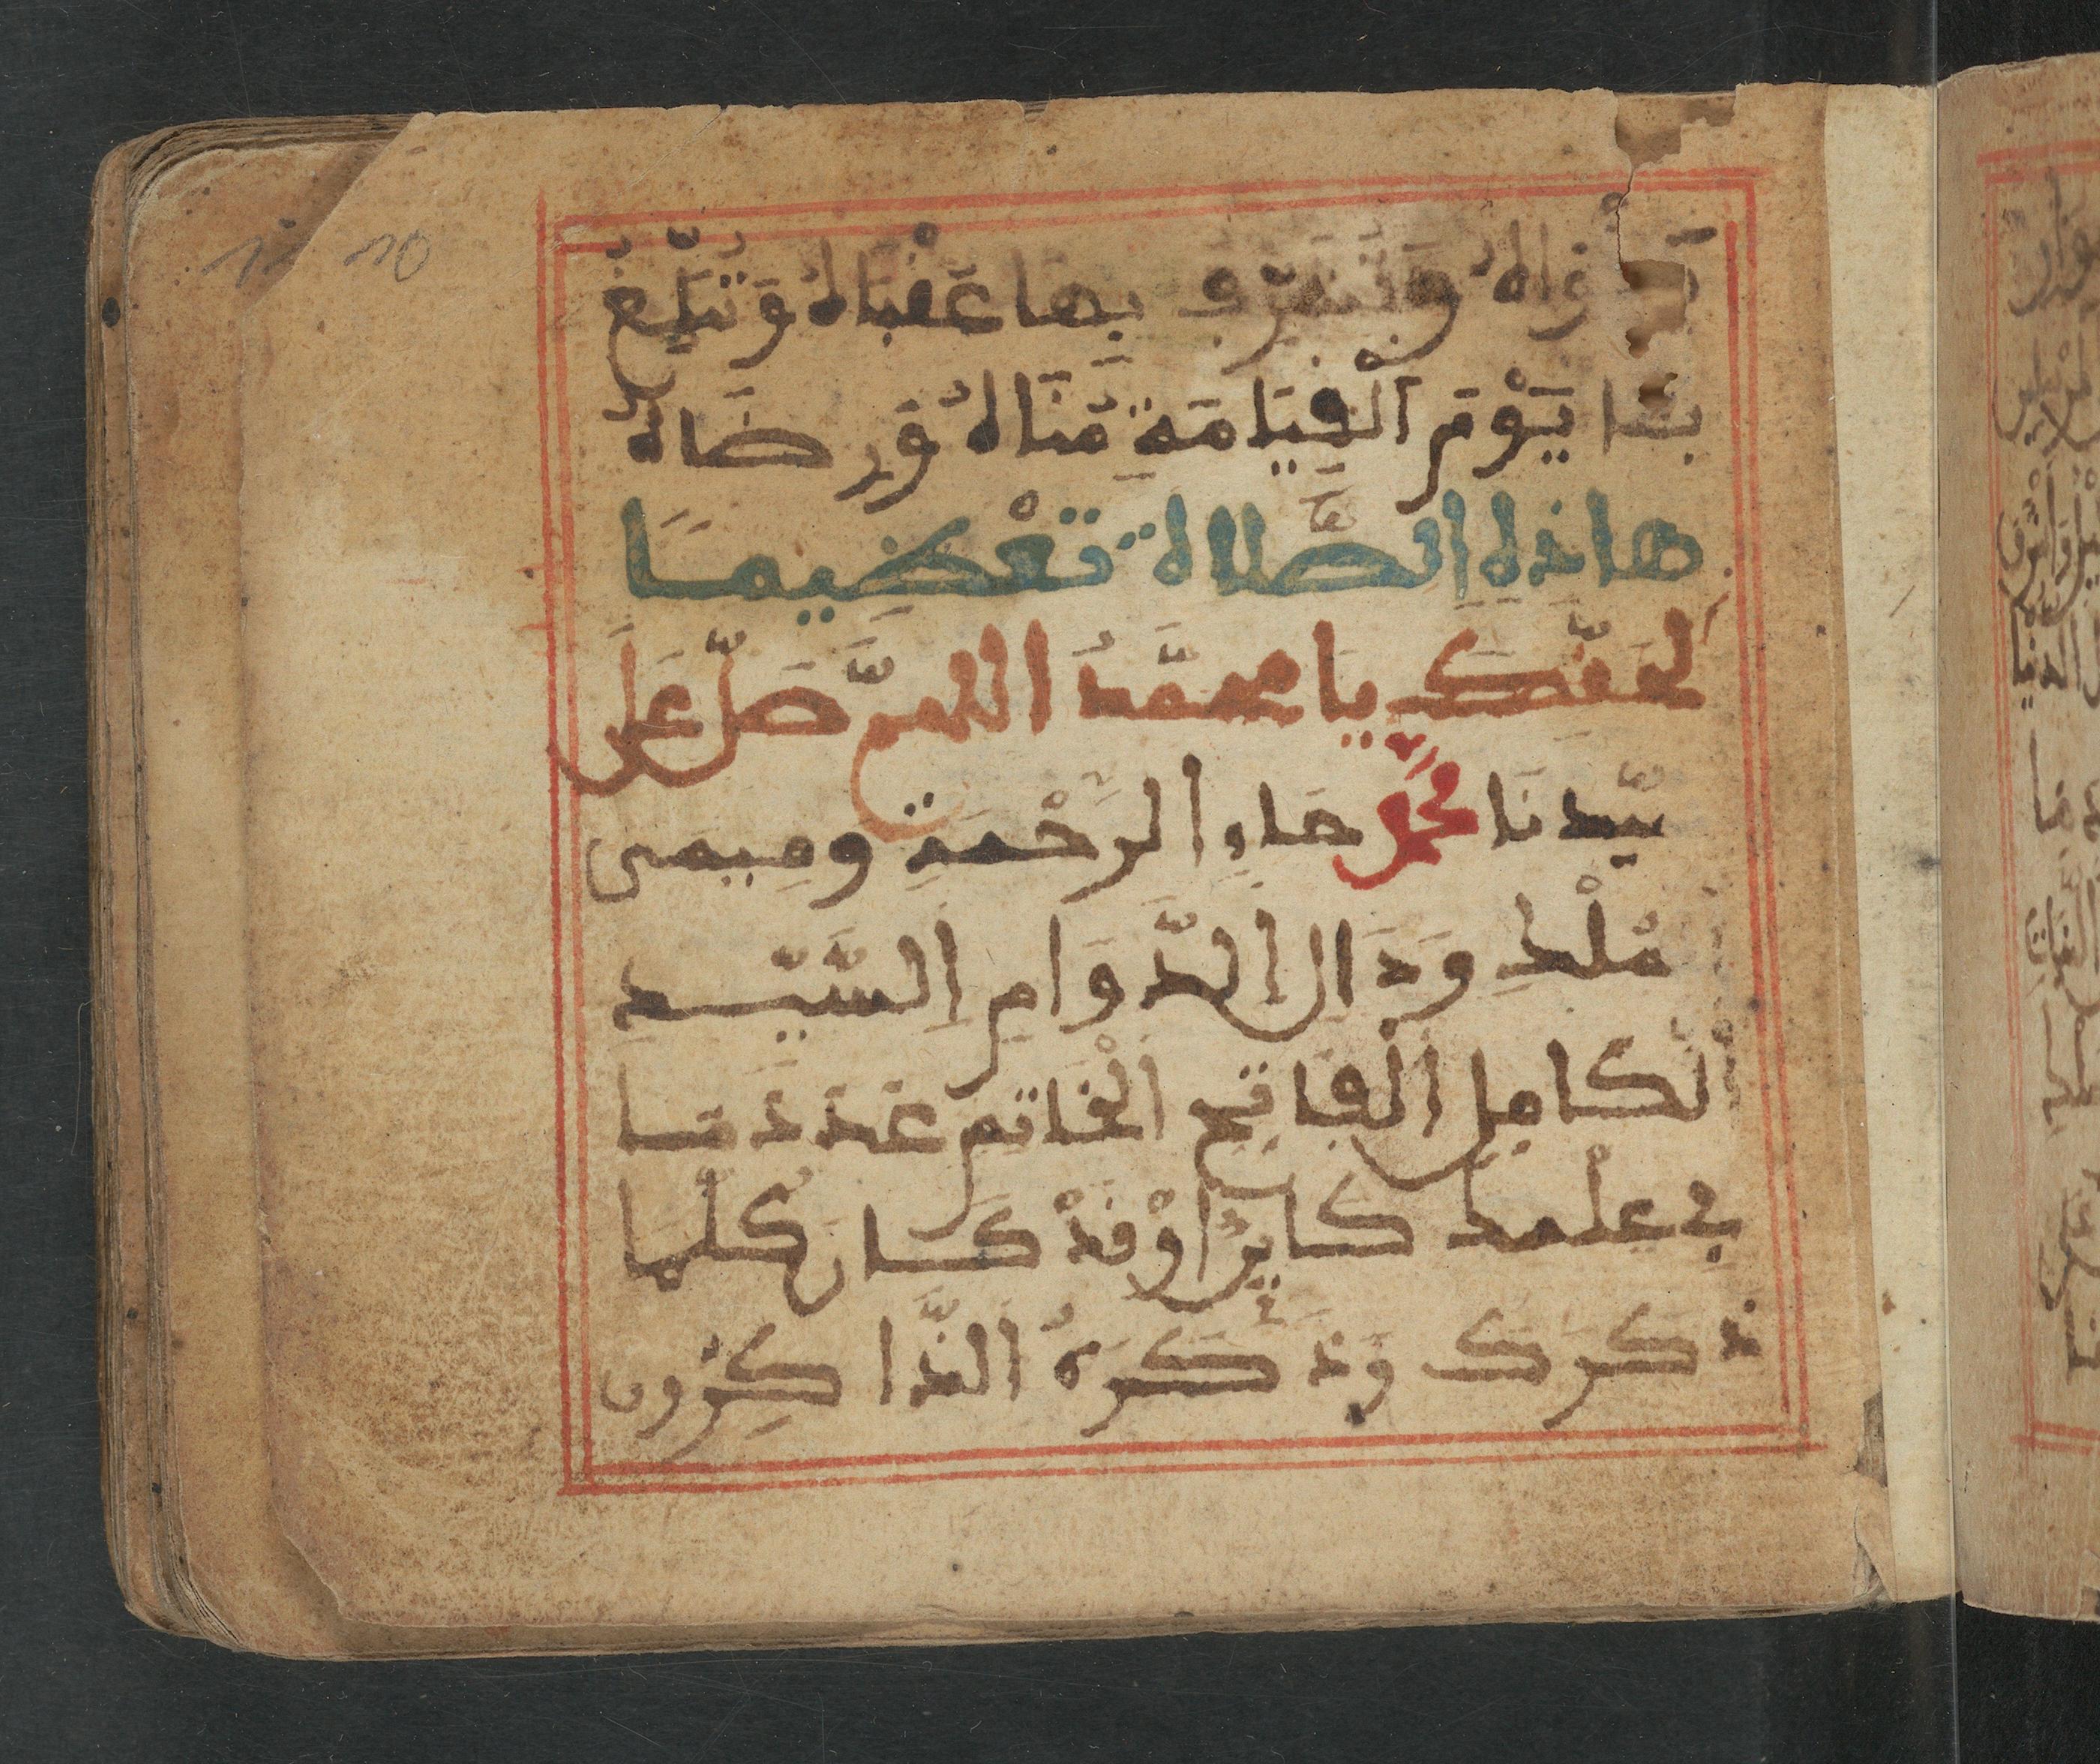 وتشرف بها عقباه وتبلغ
بها يوم القيامة مناه ورضاه
هاذه الصلاة تعظيما
لحقك يا محمد اللهم صل على
سيدنا محمد حاء الرحمة وميمى
الملك ودال الدوام السيد
الكامل الفاتح الخاتم عدد ما
في علمك كاين أو قد كان كلما
ذكرك وذكره الذاكرون